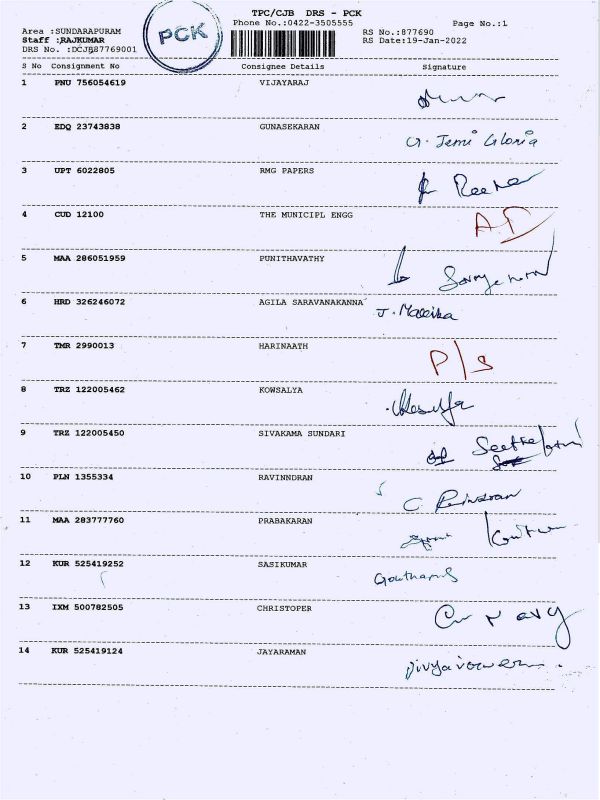 TPC/CJB DRS - PCK
Phone No.:0422-3505555 Page No.:1
Area :SUNDARAPURAM RS No.:877690
Staff :RAJKUMAR RS Date:19-Jan-2022
DRS No. :DCJB87769001
PCK
S No Consignment No Consignee Details Signature
1 PNU 756054619 VIJAYARAJ
2 EDQ 23743838 GUNASEKARAN G. Jemi Gloria
3 UPT 6022805 RMG PAPERS
4 CUD 12100 THE MUNICIPL ENGG AD
5 MAA 286051959 PUNITHAVATHY
6 HRD 326246072 AGILA SARAVANAKANNA J. Mallika
7 TMR 2990013 HARINAATH P/S
8 TRZ 122005462 KOWSALYA
9 TRZ 122005450 SIVAKAMA SUNDARI
10 PLN 1355334 RAVINNDRAN C.
11 MAA 283777760 PRABAKARAN
12 KUR 525419252 SASIKUMAR
13 IXM 500782505 CHRISTOPER
14 KUR 525419124 JAYARAMAN